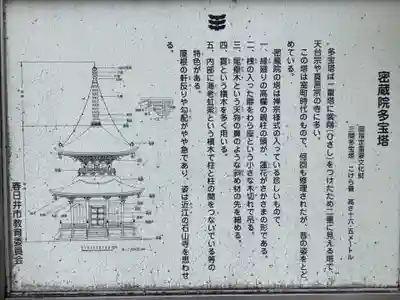 密蔵院多宝塔
国指定重要文化財
三間多宝塔 こけら葺 高さ十六・五メートル
多宝塔は一重塔に裳階(ひさし)をつけたため二重に見える塔で、
天台宗や真言宗の寺に多い。
この塔は室町時代のもので、何回も修理されたが、昔の姿をとど
めている。
密蔵院の塔は禅宗様式の入っている珍しいもので、
一、縁廻りの高欄の親柱の頭が、蓮花がさかさまの形である。
二、桟の入った扉をわら座という小さな木切れで吊る。
三、尾垂木という天狗の鼻のような斜め材の先を細める。
四、貫という横木を多く用いる。
五、内部に海老虹梁という横木で柱と柱の間をつないでいる等の
特色がある。
屋根の軒反りや勾配がやや急であり、姿は近江の石山寺を思わせ
る。
春日井市教育委員会